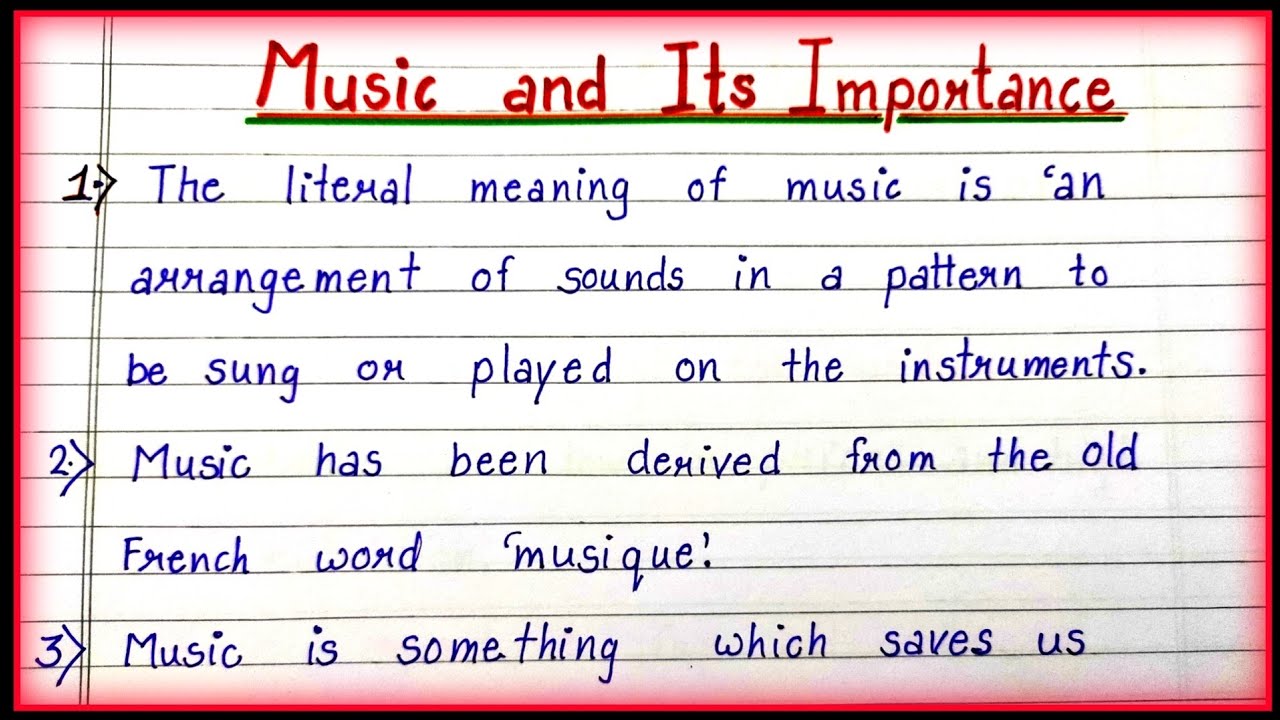 Music and Its Importance
1.) The literal meaning of music is ‘an
arrangement of sounds in a pattern to
be sung or played on the instruments.
2.) Music has been derived from the old
French word ‘musique’.
3) Music is something which saves us